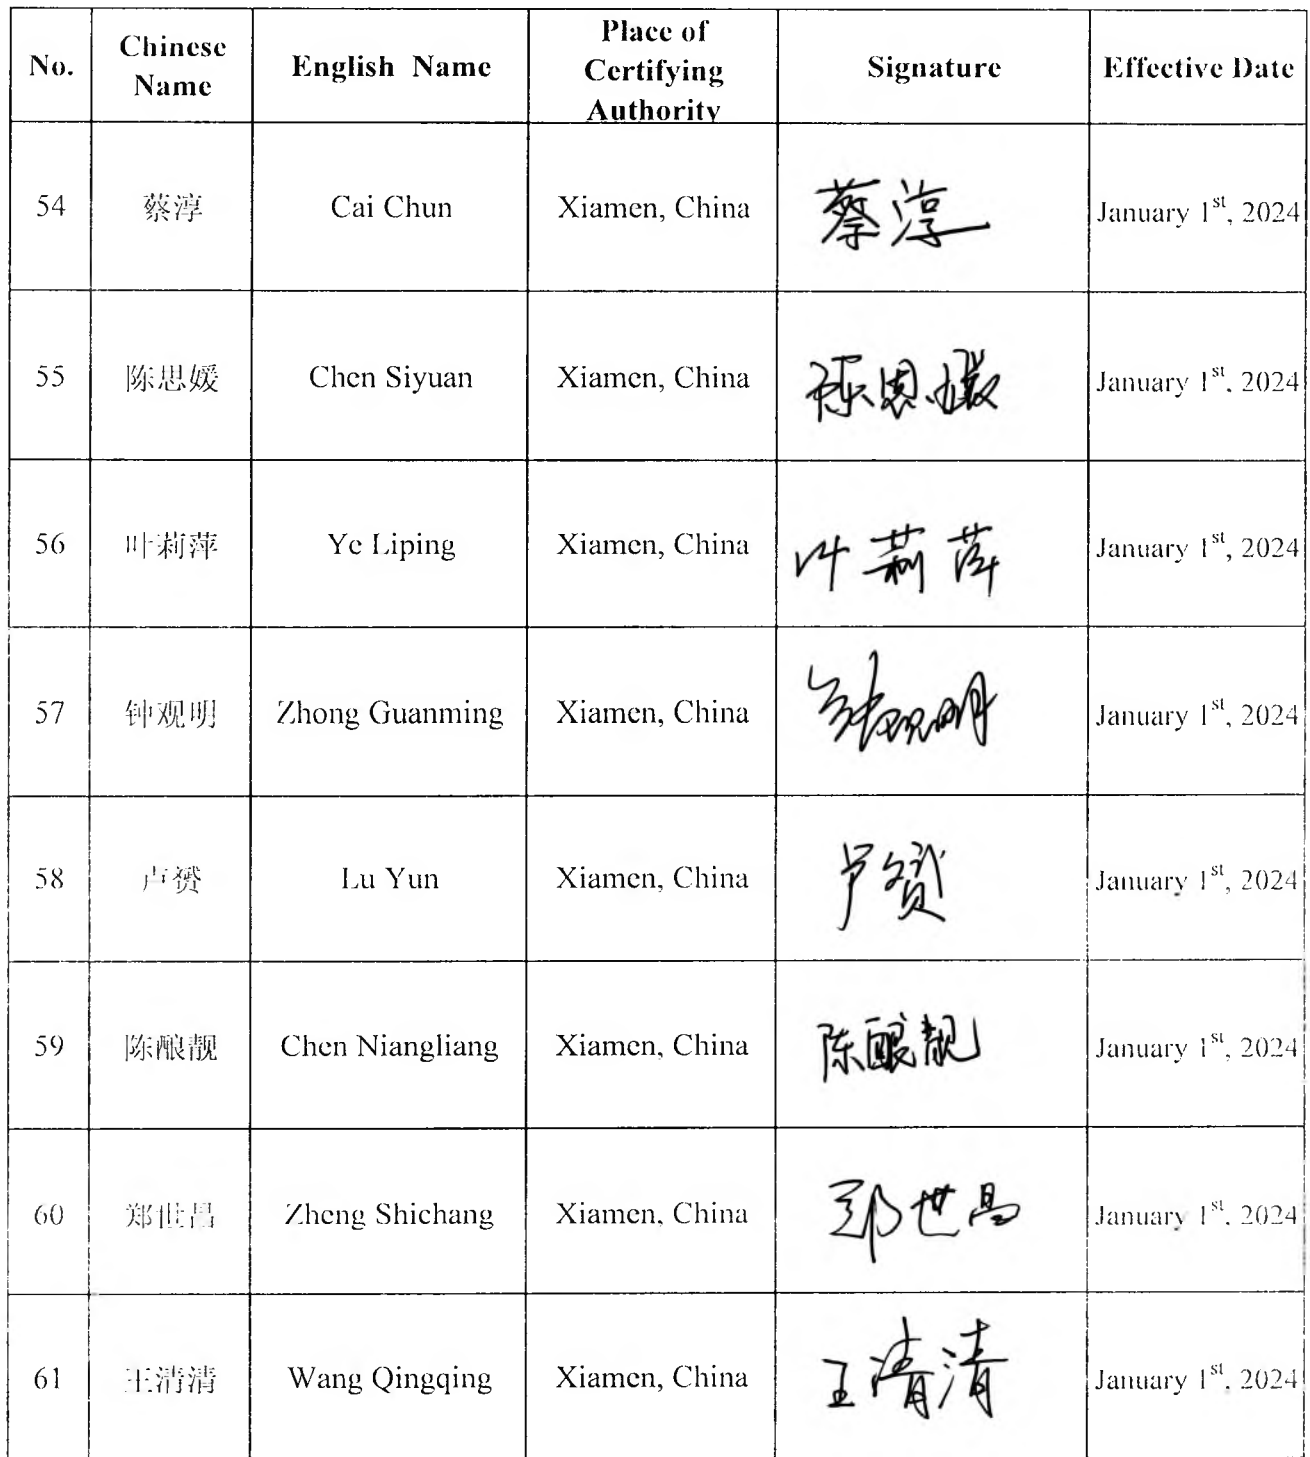 No. Chinese Name English Name Place of Certifying Authority Signature Effective Date
54 蔡淳 Cai Chun Xiamen, China 蔡淳 January 1st, 2024
55 陈思媛 Chen Siyuan Xiamen, China 陈思媛 January 1st, 2024
56 叶莉萍 Ye Liping Xiamen, China 叶莉萍 January 1st, 2024
57 钟观明 Zhong Guanming Xiamen, China 钟观明 January 1st, 2024
58 卢赟 Lu Yun Xiamen, China 卢赟 January 1st, 2024
59 陈酿靓 Chen Niangliang Xiamen, China 陈酿靓 January 1st, 2024
60 郑世昌 Zheng Shichang Xiamen, China 郑世昌 January 1st, 2024
61 王清清 Wang Qingqing Xiamen, China 王清清 January 1st, 2024